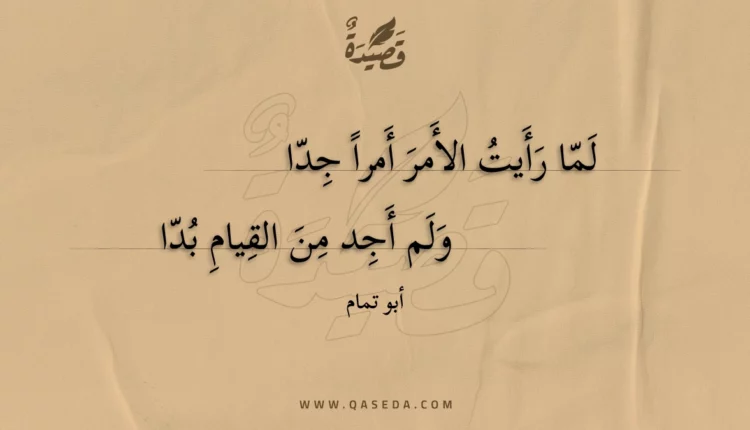 قَصِيدَةٌ
لَمّا رَأَيتُ الأَمرَ أَمراً جِدّا
وَلَم أَجِد مِنَ القِيامِ بُدّا
أبو تمام
WWW.QASEDA.COM